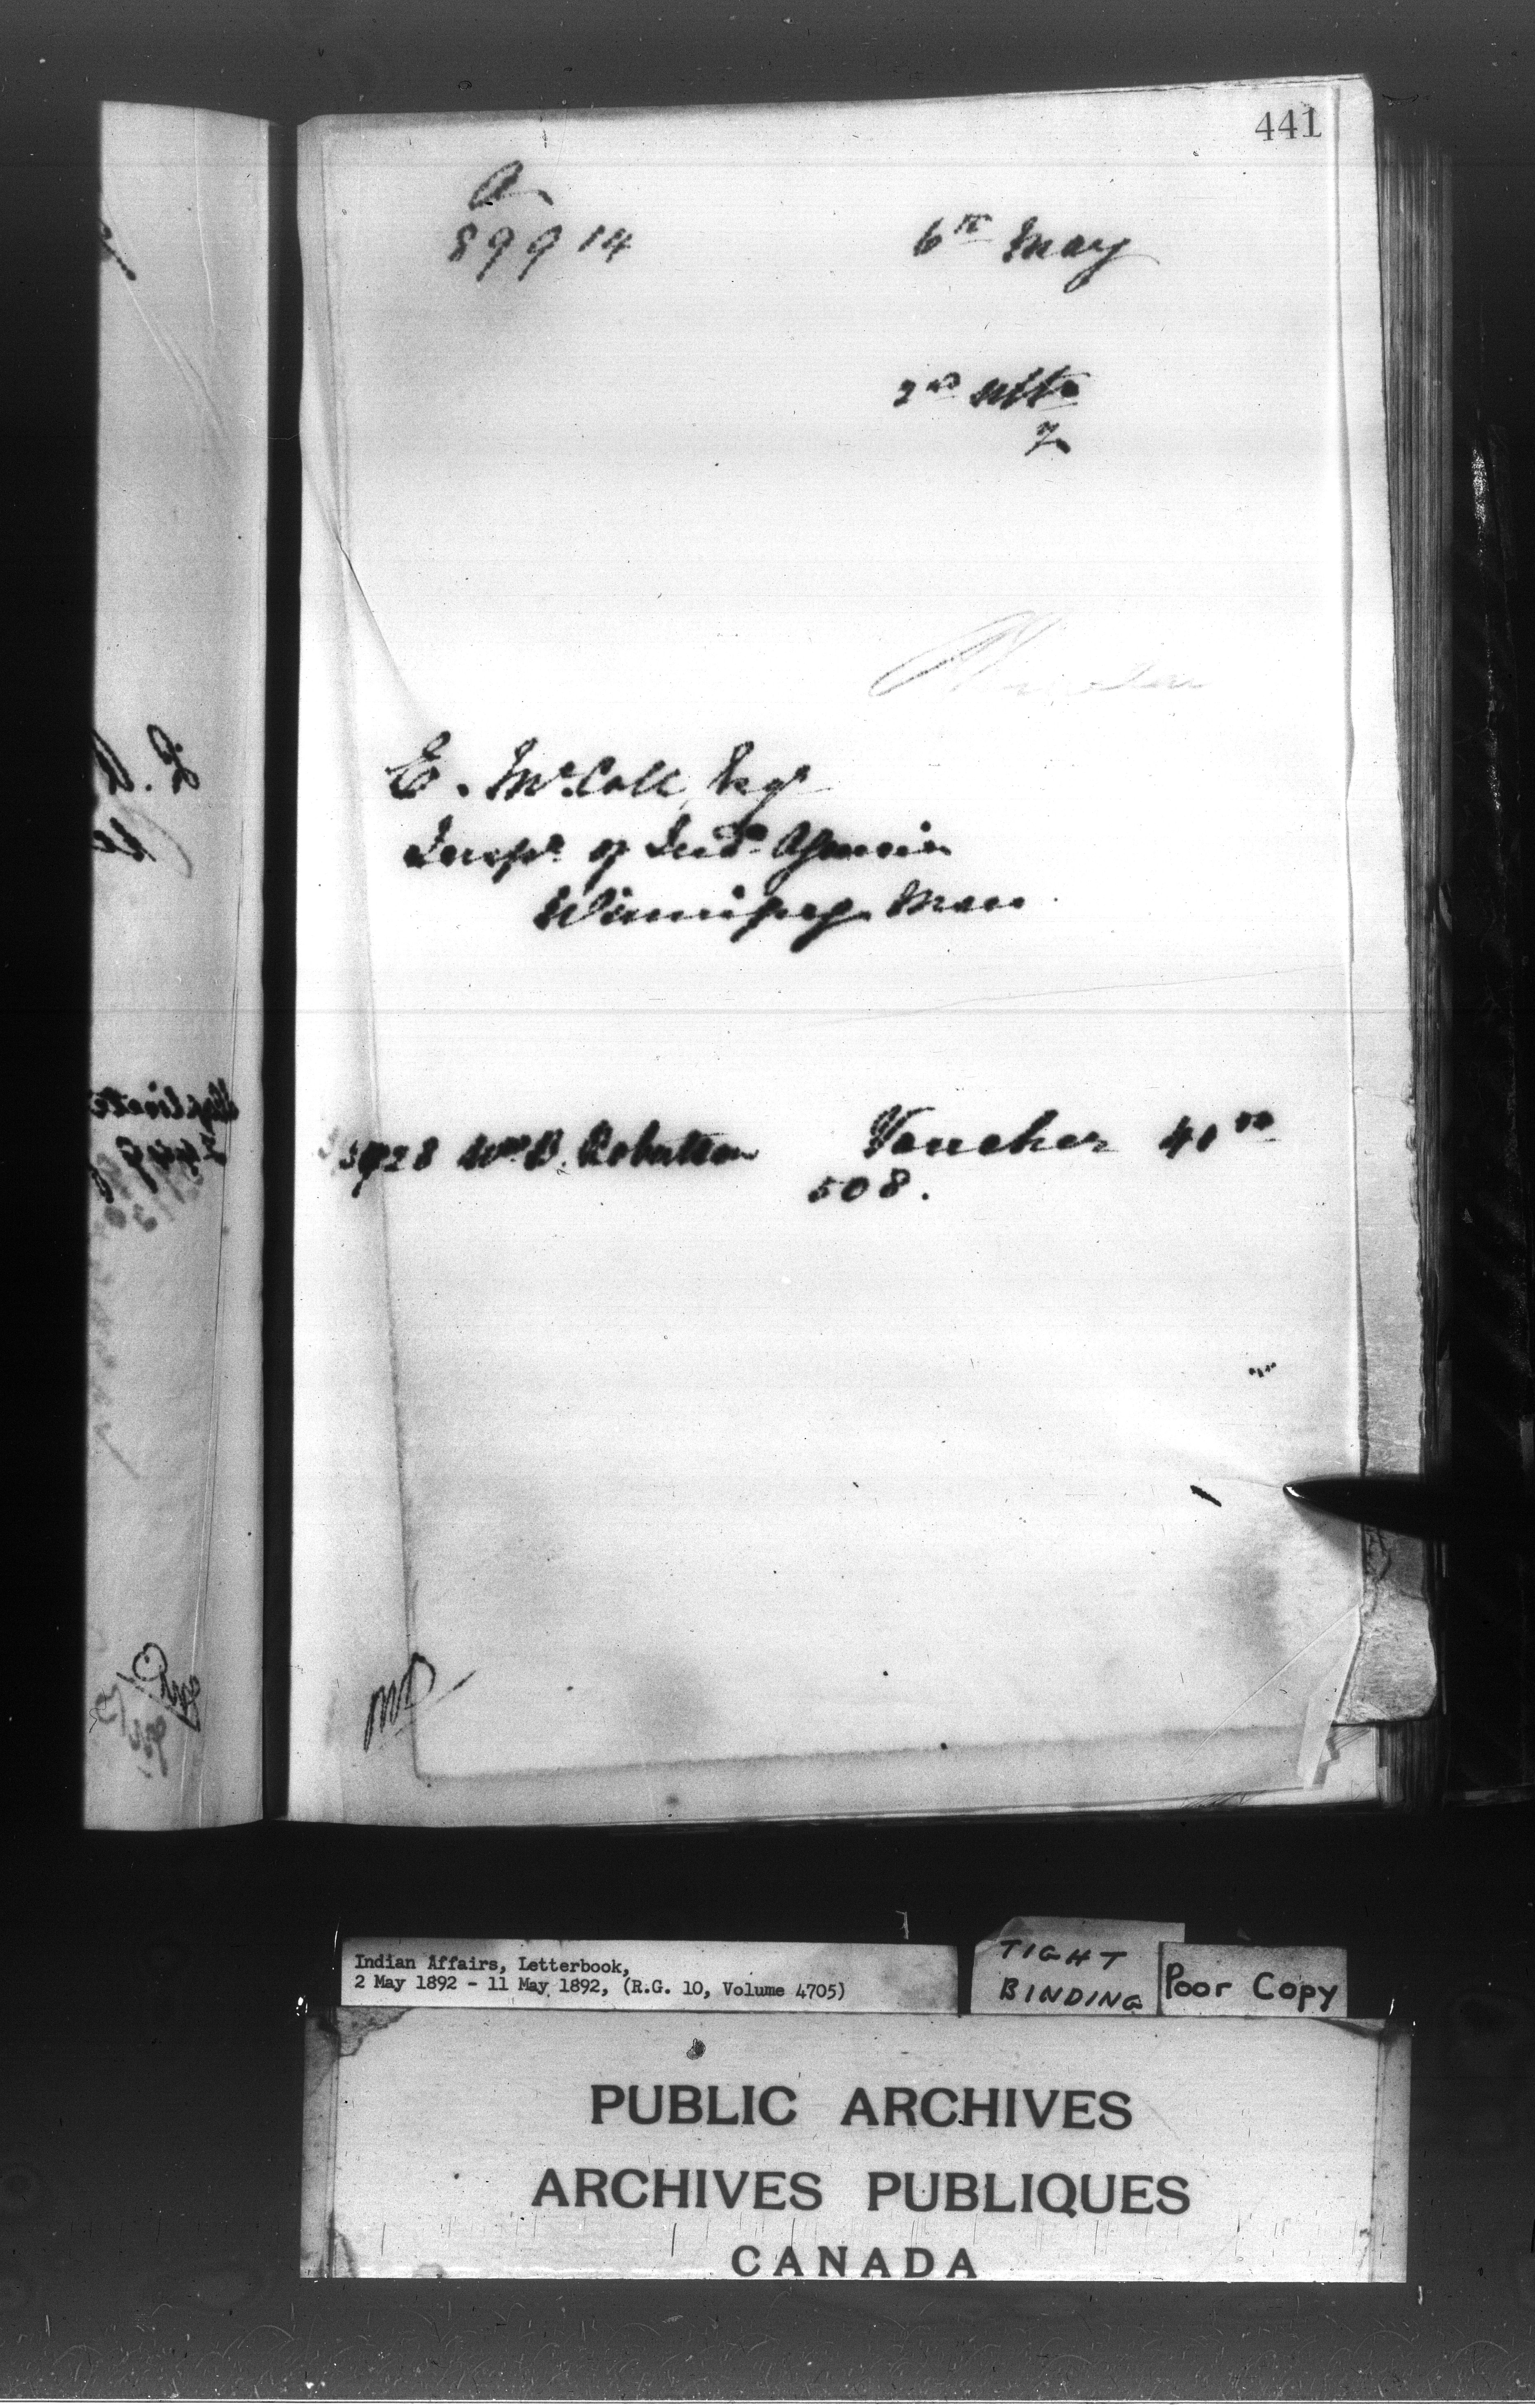 441
A
89914
6th May
2nd Ulto
7
E. McColl, Esqr
Inspr of Indn Agencies
Winnipeg Man.
Wm B. Robertson Voucher 41.00
508.
Indian Affairs, Letterbook,
2 May 1892 - 11 May 1892, (R.G. 10, Volume 4705)
TIGHT
BINDING
Poor Copy
PUBLIC ARCHIVES
ARCHIVES PUBLIQUES
CANADA